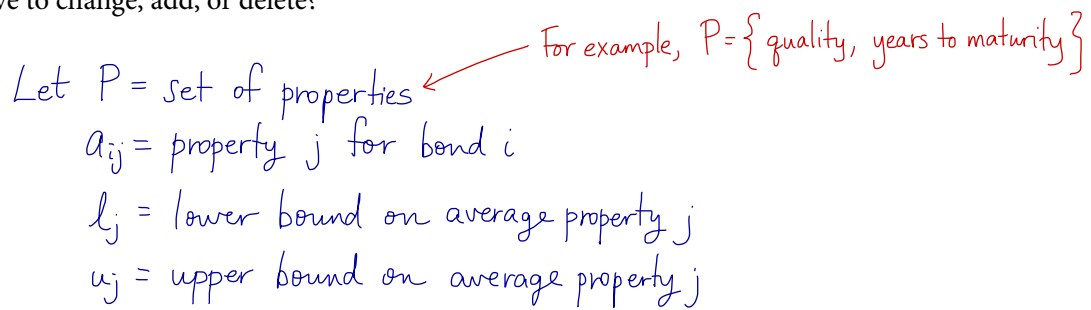 to change, add, or delete?
For example, P = { quality, years to maturity }
Let P = set of properties
a_ij = property j for bond i
l_j = lower bound on average property j
u_j = upper bound on average property j